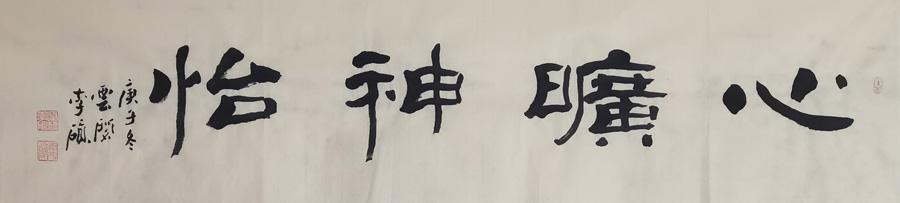 心曠神怡
庚子冬
雲
李